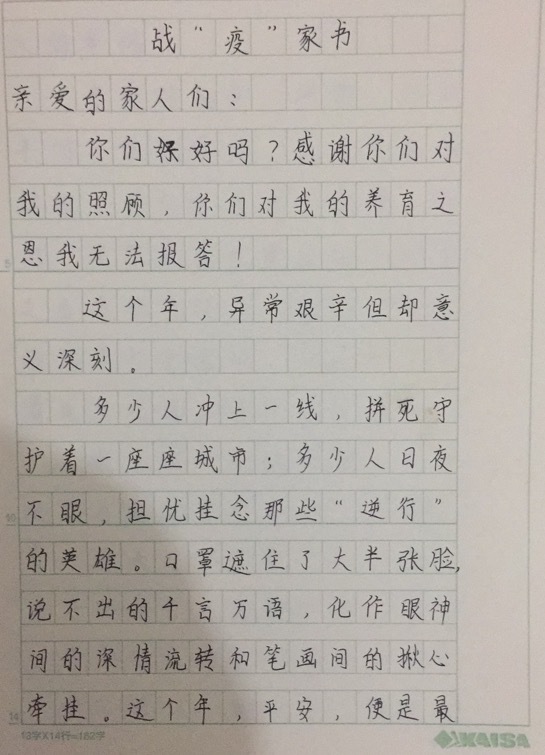 战“疫”家书
亲爱的家人们：
你们好吗？感谢你们对
我的照顾，你们对我的养育之
恩我无法报答！
这个年，异常艰辛但却意
义深刻。
多少人冲上一线，拼死守
护着一座座城市；多少人日夜
不眼，担忧挂念那些“逆行”
的英雄。口罩遮住了大半张脸，
说不出的千言万语，化作眼神
间的深情流转和笔画间的揪心
牵挂。这个年，平安，便是最
13字X14行=182字
KAISA